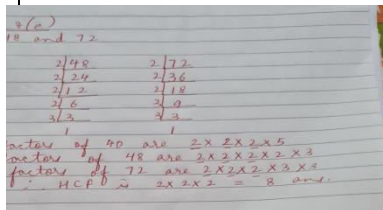 4(e)
18 and 72
2|48 2|72
2|24 2|36
2|12 2|18
2|6 3|9
3|3 3|3
1 1
actors of 40 are 2 x 2 x 2 x 5
actors of 48 are 2 x 2 x 2 x 2 x 3
factors of 72 are 2 x 2 x 2 x 3 x 3
∴ HCF is 2 x 2 x 2 = 8 ans.